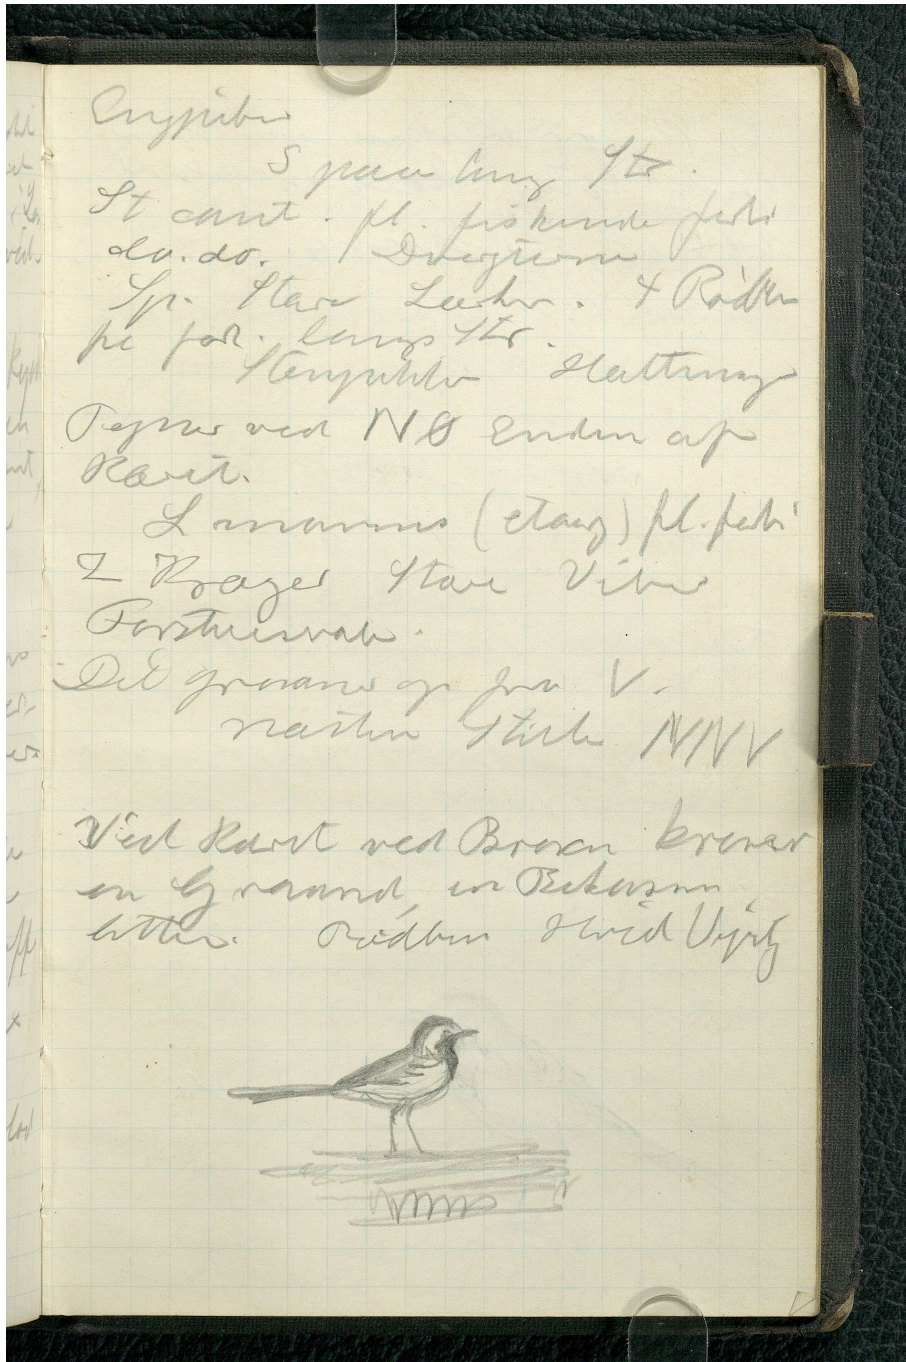 Engpiber
S paa lang Str.
St cant. fl. fiskende forbi
do. do. 1 Dvergterne
Sp. Stær Lærker. 4 Rødben
langs Str.
Stenpikker Hætting
Tegner ved NØ Enden af
Kæret.
L marinus (etaarg) fl. forbi
2 Krager Stære Viber
Forstuesvale.
Det graaner op fra V.
næsten Stille NNV
Ved Kæret ved Broen
en Graaand, en Bekasin
letter. Rødben Hvid Vipstj